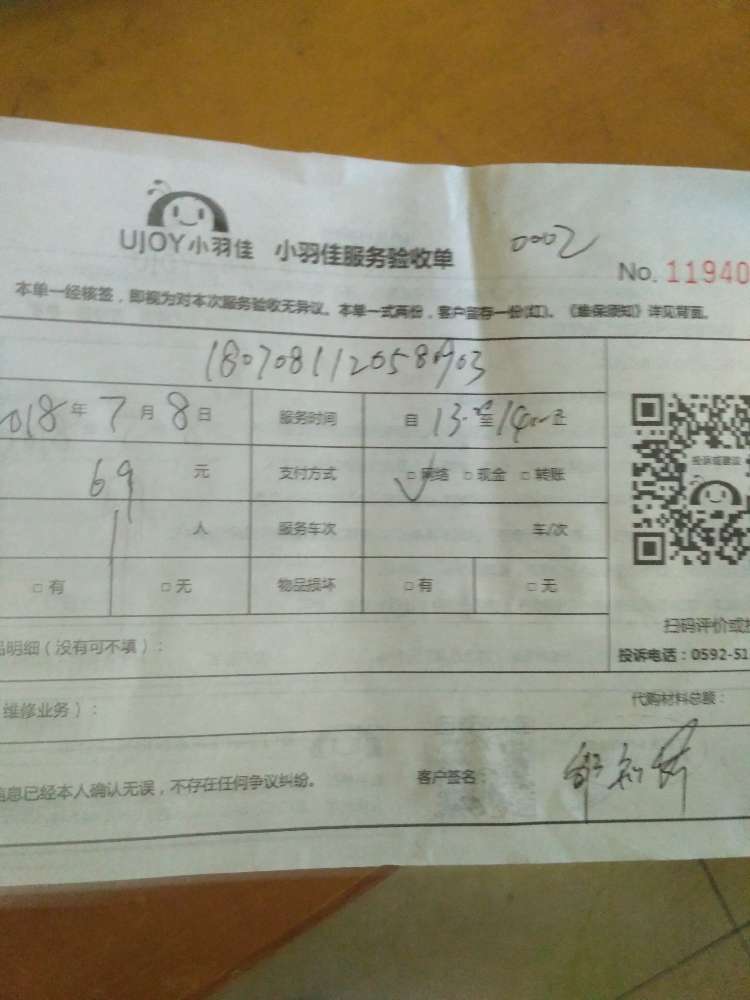 UJOY小羽佳 小羽佳服务验收单 0002
No. 11940
本单一经核签，即视为对本次服务验收无异议。本单一式两份，客户留存一份(红)。《维保须知》详见背面。
2018年7月8日 服务时间 自 13.00 至 14
69 元 支付方式 □网络 □现金 □转账
投诉或建议
1 人 服务车次 车/次
□有 □无 物品损坏 □有 □无
扫码评价或
品明细（没有可不填）：
投诉电话：0592-51
维修业务）： 代购材料总额：
信息已经本人确认无误，不存在任何争议纠纷。 客户签名：